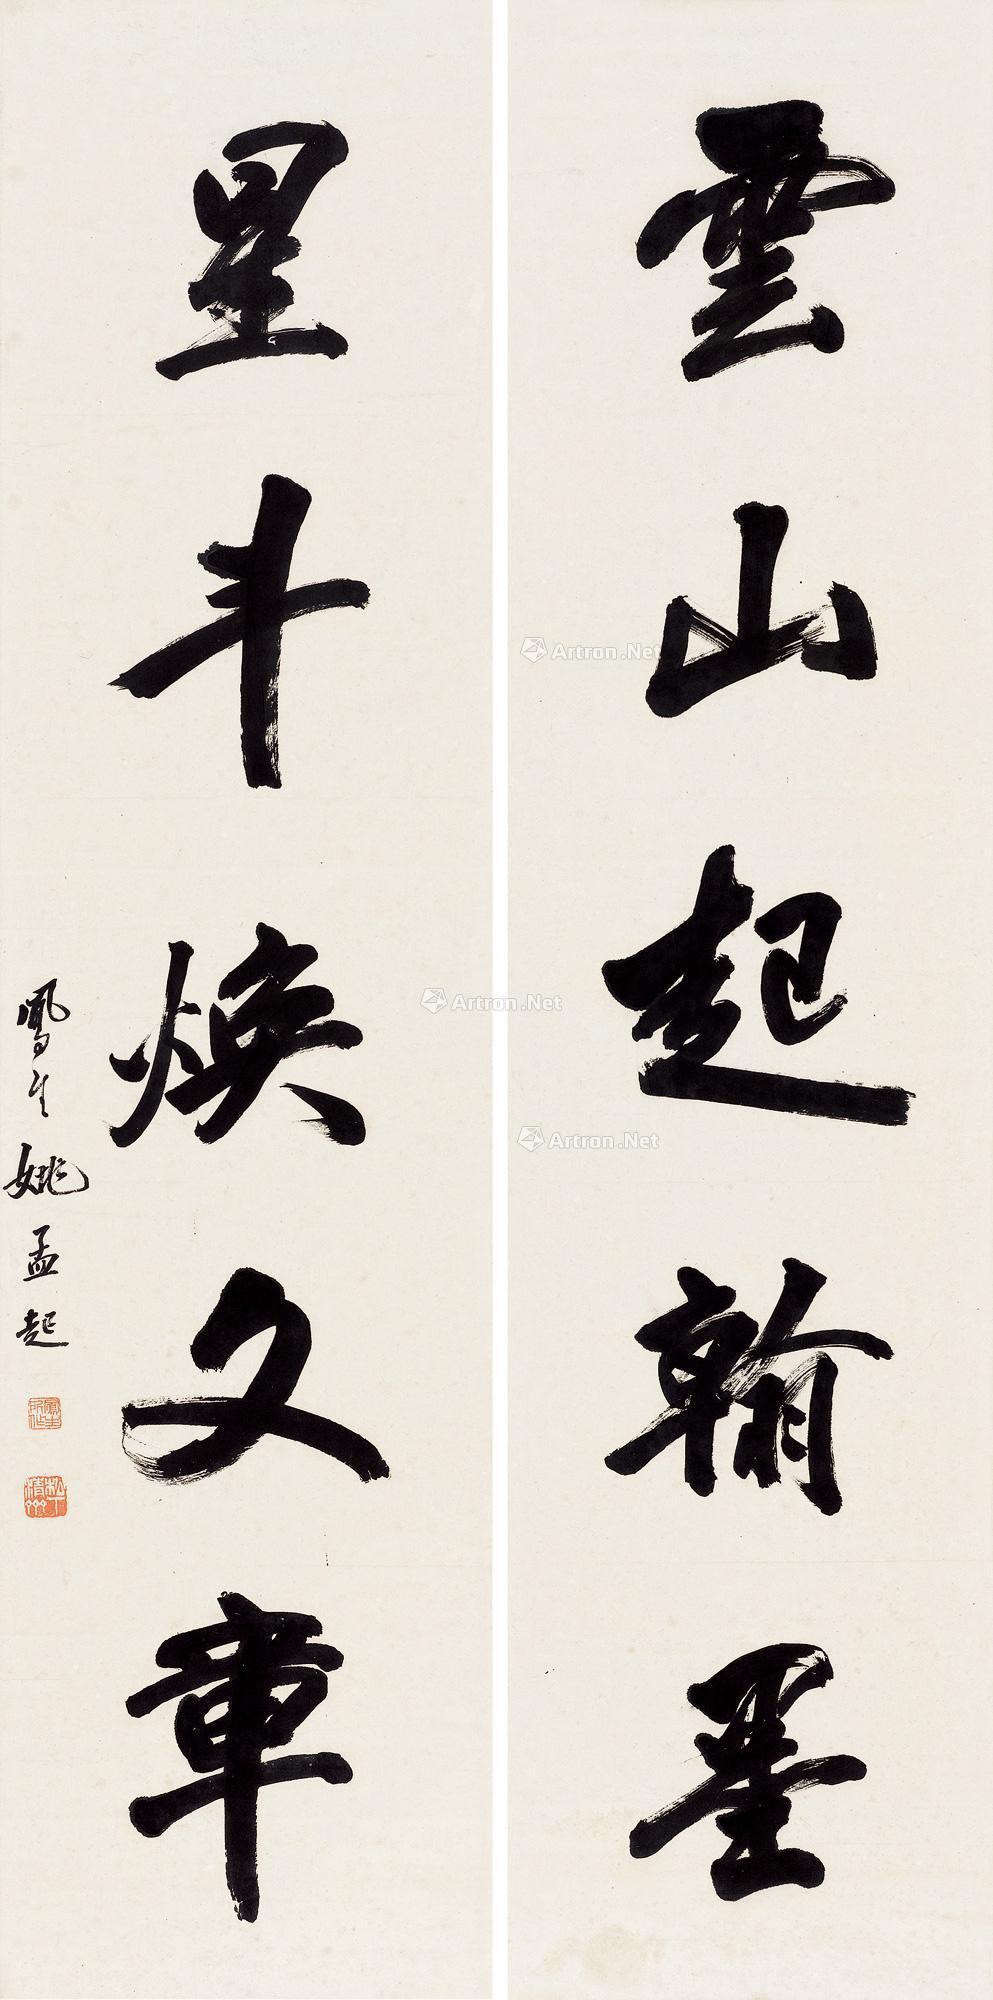 雲山起翰墨
星斗煥文章
鳳生姚孟起
Artron.Net
Artron.Net
Artron.Net